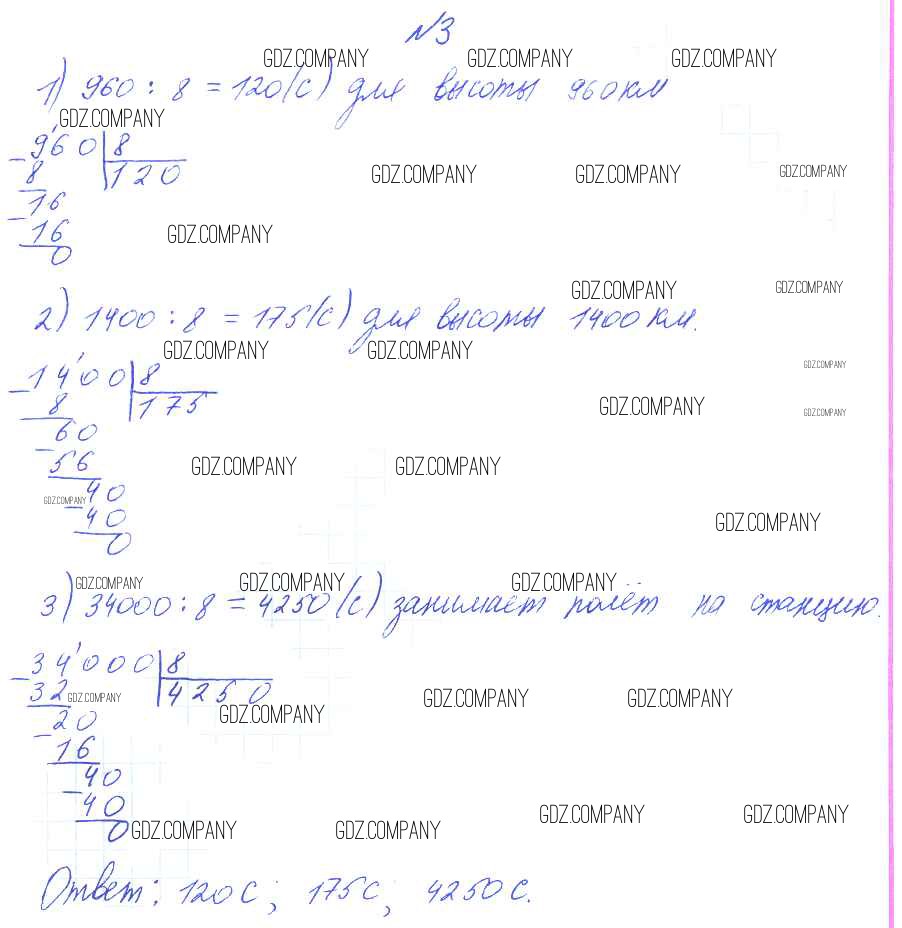 №3
GDZ.COMPANY GDZ.COMPANY GDZ.COMPANY
1) 960 : 8 = 120 (с) для высоты 960 км
GDZ.COMPANY
− 960 | 8
8 120
GDZ.COMPANY GDZ.COMPANY GDZ.COMPANY
− 16
16
GDZ.COMPANY
0
GDZ.COMPANY GDZ.COMPANY
2) 1400 : 8 = 175 (с) для высоты 1400 км.
GDZ.COMPANY GDZ.COMPANY
GDZ.COMPANY
− 1400 | 8
8 175
GDZ.COMPANY GDZ.COMPANY
− 60
56
GDZ.COMPANY GDZ.COMPANY
− 40
GDZ.COMPANY
40
GDZ.COMPANY
0
GDZ.COMPANY GDZ.COMPANY GDZ.COMPANY
3) 34000 : 8 = 4250 (с) занимает полёт на станцию.
− 34000 | 8
32 4250
GDZ.COMPANY GDZ.COMPANY GDZ.COMPANY
GDZ.COMPANY
− 20
16
− 40
40
GDZ.COMPANY GDZ.COMPANY
0
GDZ.COMPANY GDZ.COMPANY
Ответ: 120 с; 175 с; 4250 с.